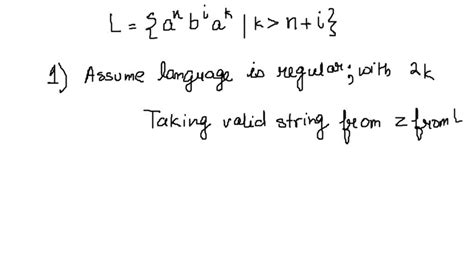 L = {aⁿ bⁱ aᵏ | k > n + i}
1) Assume language is regular; with 2k
Taking valid string from z from L